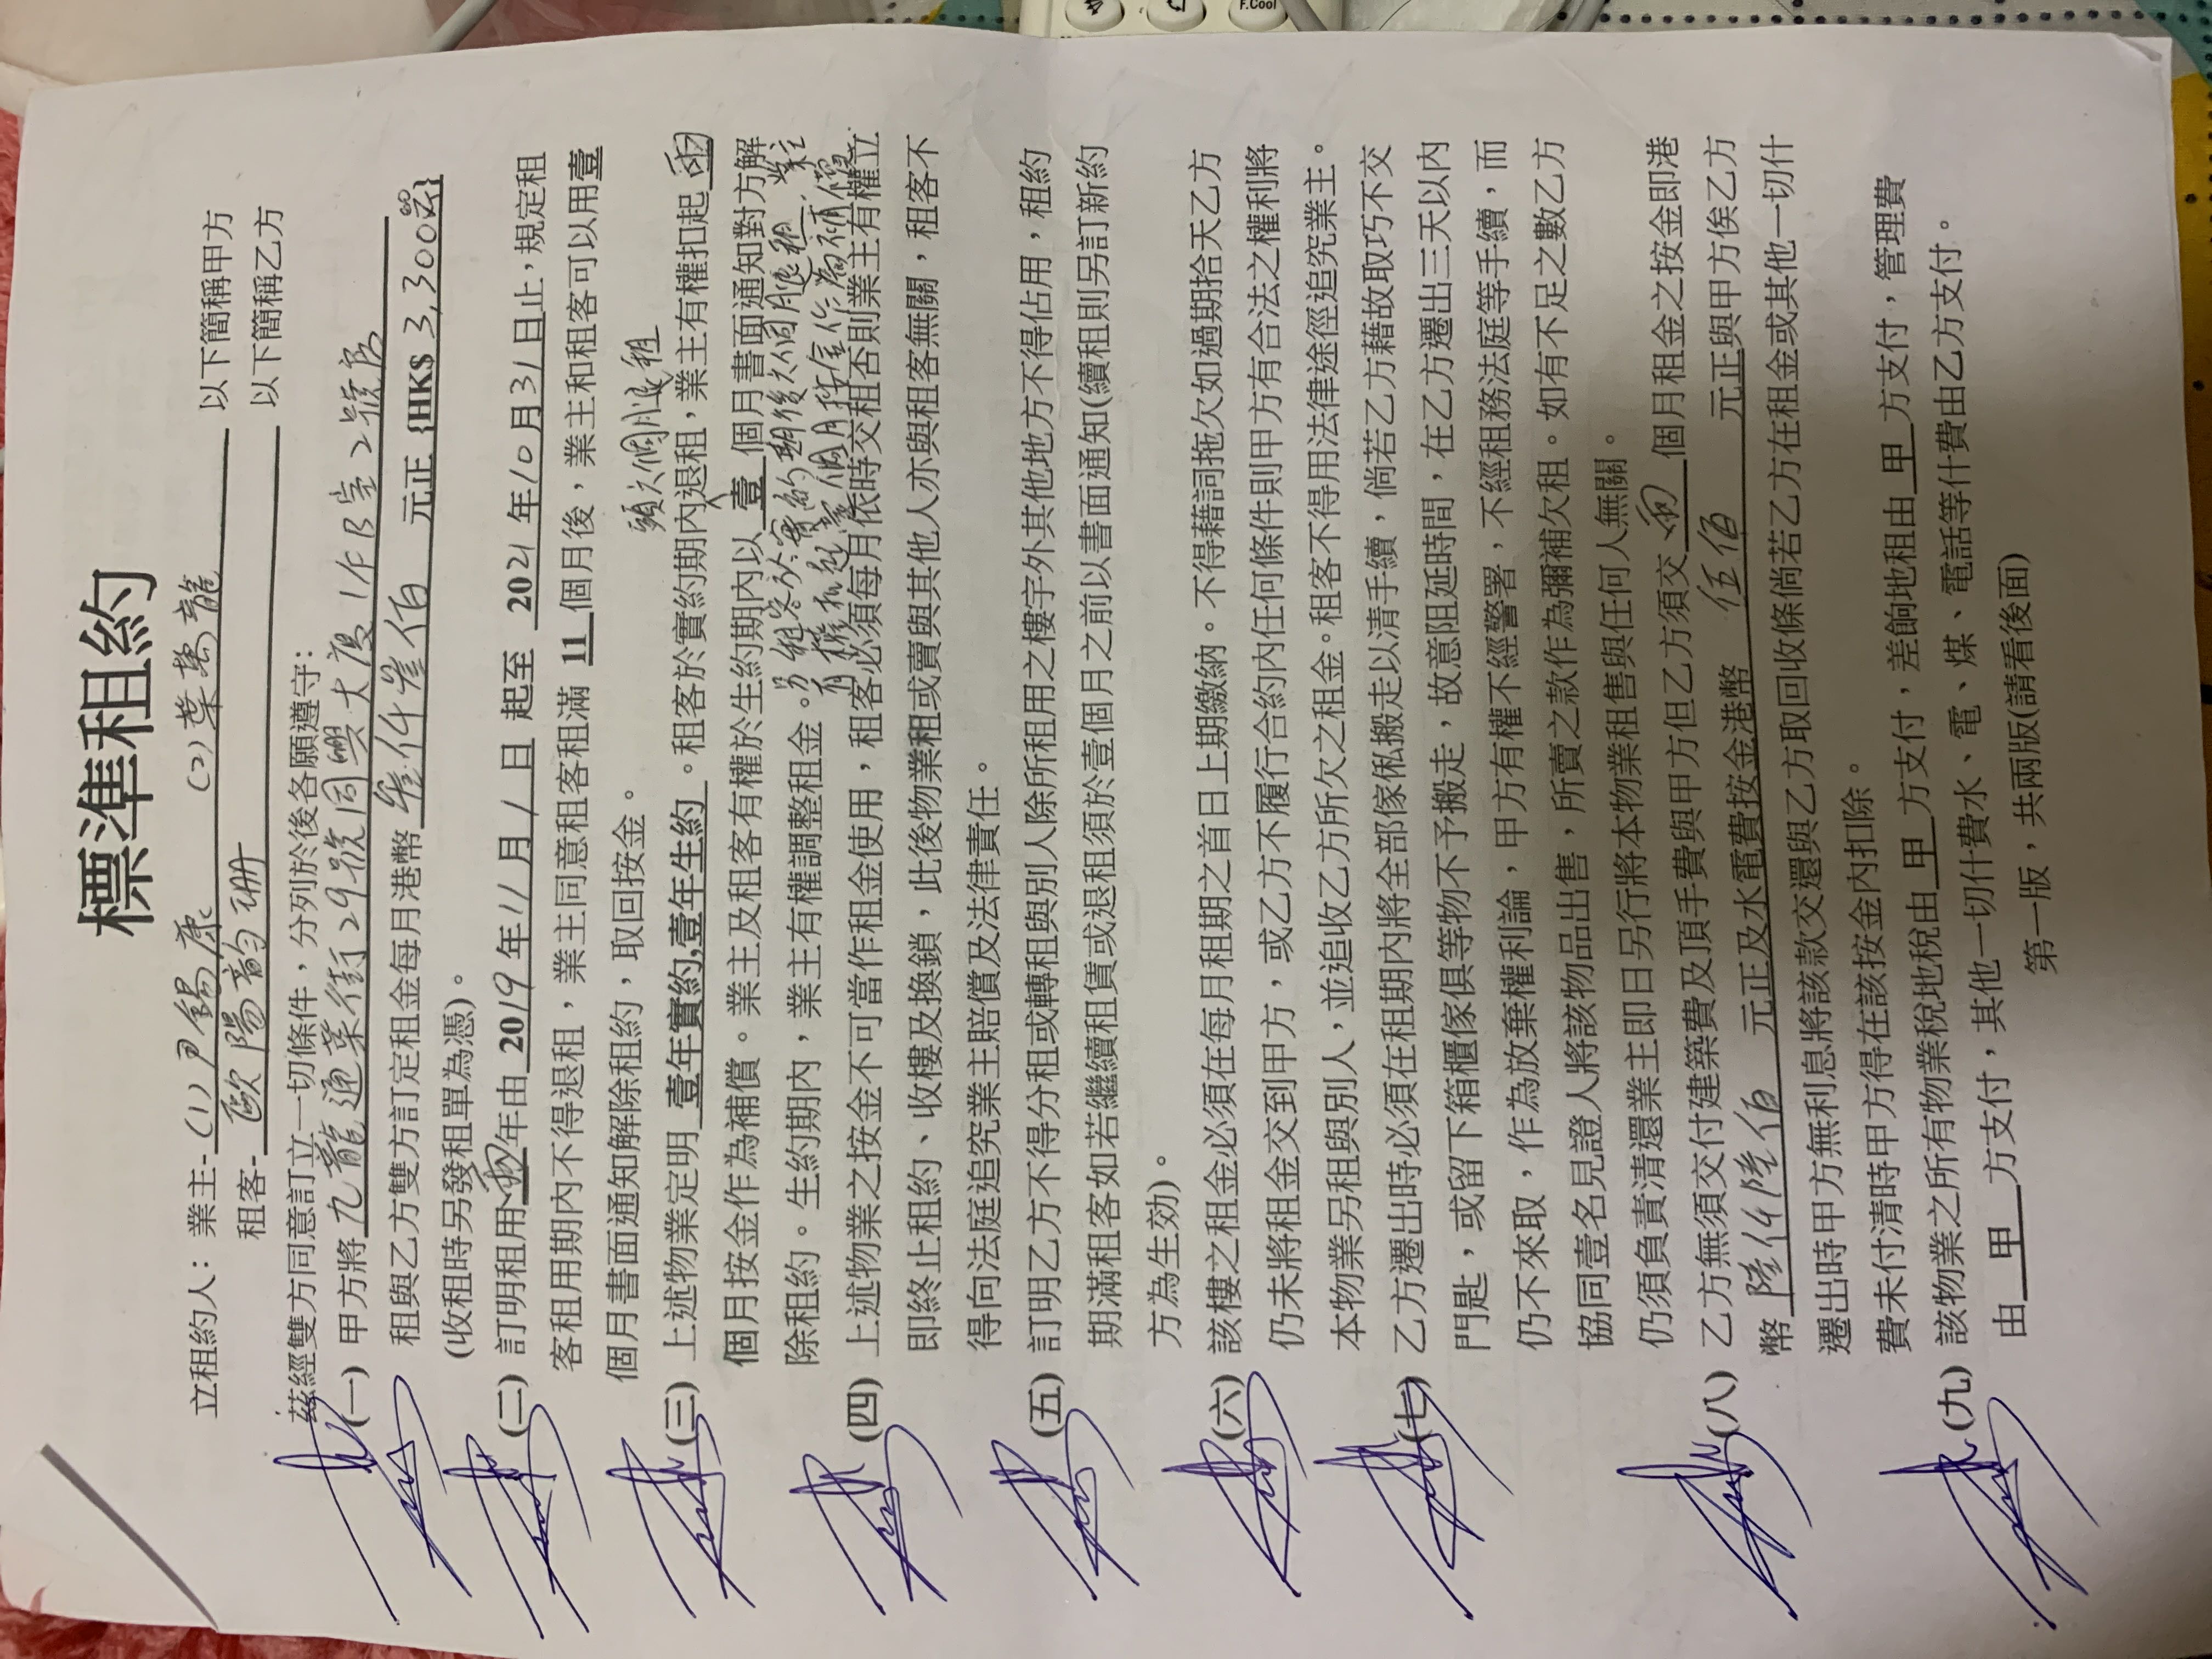 F.Cool
標準租約
立租約人： 業主- (1) 尹錫康 (2) 葉萬龍 以下簡稱甲方
租客- 歐陽韵珊 以下簡稱乙方
茲經雙方同意訂立一切條件，分列於後各願遵守：
(一) 甲方將 九龍通菜街29號同興大廈1/F B室2號房
租與乙方雙方訂定租金每月港幣 叁仟叁佰 元正 {HK$ 3,300.00}
(收租時另發租單為憑)。
(二) 訂明租用 兩 年由 2019 年 11 月 1 日 起至 2021 年 10 月 31 日止，規定租
客租用期內不得退租，業主同意租客租滿 11 個月後，業主和租客可以用壹
個月書面通知解除租約，取回按金。
頭六個月退租
(三) 上述物業定明 壹年實約,壹年生約 。租客於實約期內退租，業主有權扣起 兩
個月按金作為補償。業主及租客有權於生約期內以 壹 個月書面通知對方解
除租約。生約期內，業主有權調整租金。另租客於實約期後六個月退租，業主
有權扣起壹個月按金作為補償
(四) 上述物業之按金不可當作租金使用，租客必須每月依時交租否則業主有權立
即終止租約、收樓及換鎖，此後物業租或賣與其他人亦與租客無關，租客不
得向法庭追究業主賠償及法律責任。
(五) 訂明乙方不得分租或轉租與別人除所租用之樓宇外其他地方不得佔用，租約
期滿租客如若繼續租賃或退租須於壹個月之前以書面通知(續租則另訂新約
方為生効)。
(六) 該樓之租金必須在每月租期之首日上期繳納。不得藉詞拖欠如過期拾天乙方
仍未將租金交到甲方，或乙方不履行合約內任何條件則甲方有合法之權利將
本物業另租與別人，並追收乙方所欠之租金。租客不得用法律途徑追究業主。
(七) 乙方遷出時必須在租期內將全部傢俬搬走以清手續，倘若乙方藉故取巧不交
門匙，或留下箱櫃傢俱等物不予搬走，故意阻延時間，在乙方遷出三天以內
仍不來取，作為放棄權利論，甲方有權不經警署，不經租務法庭等手續，而
協同壹名見證人將該物品出售，所賣之款作為彌補欠租。如有不足之數乙方
仍須負責清還業主即日另行將本物業租售與任何人無關。
(八) 乙方無須交付建築費及頂手費與甲方但乙方須交 兩 個月租金之按金即港
幣 陸仟陸佰 元正及水電費按金港幣 伍佰 元正與甲方俟乙方
遷出時甲方無利息將該款交還與乙方取回收條倘若乙方在租金或其他一切什
費未付清時甲方得在該按金內扣除。
(九) 該物業之所有物業稅地稅由 甲 方支付，差餉地租由 甲 方支付，管理費
由 甲 方支付，其他一切什費水、電、煤、電話等什費由乙方支付。
第一版，共兩版(請看後面)